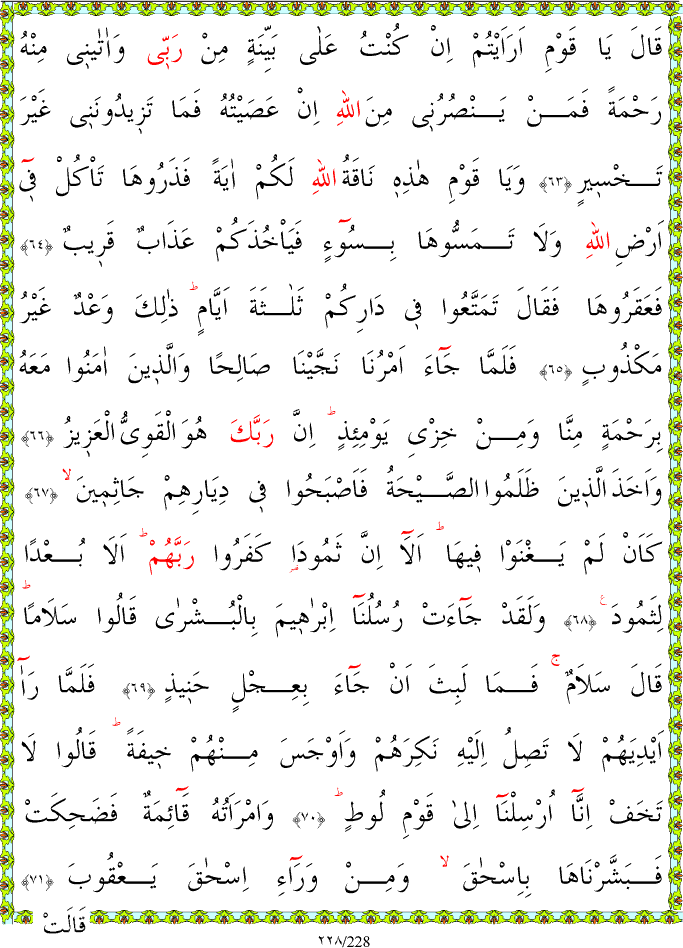 قَالَ يَا قَوْمِ اَرَاَيْتُمْ اِنْ كُنْتُ عَلٰى بَيِّنَةٍ مِنْ رَبّ۪ى وَاٰتٰين۪ى مِنْهُ
رَحْمَةً فَمَـــنْ يَـــنْصُرُن۪ى مِنَ اللّٰهِ اِنْ عَصَيْتُهُ فَمَا تَز۪يدُونَن۪ى غَيْرَ
تَـــخْس۪يرٍ ﴿٦٣﴾ وَيَا قَوْمِ هٰذِه۪ نَاقَةُ اللّٰهِ لَكُمْ اٰيَةً فَذَرُوهَا تَاْكُلْ ف۪ٓى
اَرْضِ اللّٰهِ وَلَا تَـــمَسُّوهَا بِـــسُوٓءٍ فَيَاْخُذَكُمْ عَذَابٌ قَر۪يبٌ ﴿٦٤﴾
فَعَقَرُوهَا فَقَالَ تَمَتَّعُوا ف۪ى دَارِكُمْ ثَلٰـــثَةَ اَيَّامٍۜ ذٰلِكَ وَعْدٌ غَيْرُ
مَكْذُوبٍ ﴿٦٥﴾ فَلَمَّا جَٓاءَ اَمْرُنَا نَجَّيْنَا صَالِحًا وَالَّذ۪ينَ اٰمَنُوا مَعَهُ
بِرَحْمَةٍ مِنَّا وَمِـــنْ خِزْىِ يَوْمِئِذٍۜ اِنَّ رَبَّكَ هُوَ الْقَوِىُّ الْعَز۪يزُ ﴿٦٦﴾
وَاَخَذَ الَّذ۪ينَ ظَلَمُوا الصَّـــيْحَةُ فَاَصْبَحُوا ف۪ى دِيَارِهِمْ جَاثِم۪ينَۙ ﴿٦٧﴾
كَاَنْ لَمْ يَـــغْنَوْا ف۪يهَاۜ اَلَٓا اِنَّ ثَمُودَا۬ كَفَرُوا رَبَّهُمْۜ اَلَا بُـــعْدًا
لِثَمُودَ۟ ﴿٦٨﴾ وَلَقَدْ جَٓاءَتْ رُسُلُنَٓا اِبْرٰه۪يمَ بِالْبُـــشْرٰى قَالُوا سَلَامًاۜ
قَالَ سَلَامٌۚ فَـــمَا لَبِثَ اَنْ جَٓاءَ بِعِـــجْلٍ حَن۪يذٍ ﴿٦٩﴾ فَلَمَّا رَآٰ
اَيْدِيَهُمْ لَا تَصِلُ اِلَيْهِ نَكِرَهُمْ وَاَوْجَسَ مِـــنْهُمْ خ۪يفَةًۜ قَالُوا لَا
تَخَفْ اِنَّٓا اُرْسِلْنَٓا اِلٰى قَوْمِ لُوطٍۜ ﴿٧٠﴾ وَامْرَاَتُهُ قَٓائِمَةٌ فَضَحِكَتْ
فَـــبَشَّرْنَاهَا بِاِسْحٰقَۙ وَمِـــنْ وَرَٓاءِ اِسْحٰقَ يَـــعْقُوبَ ﴿٧١﴾
قَالَتْ
٢٢٨/228